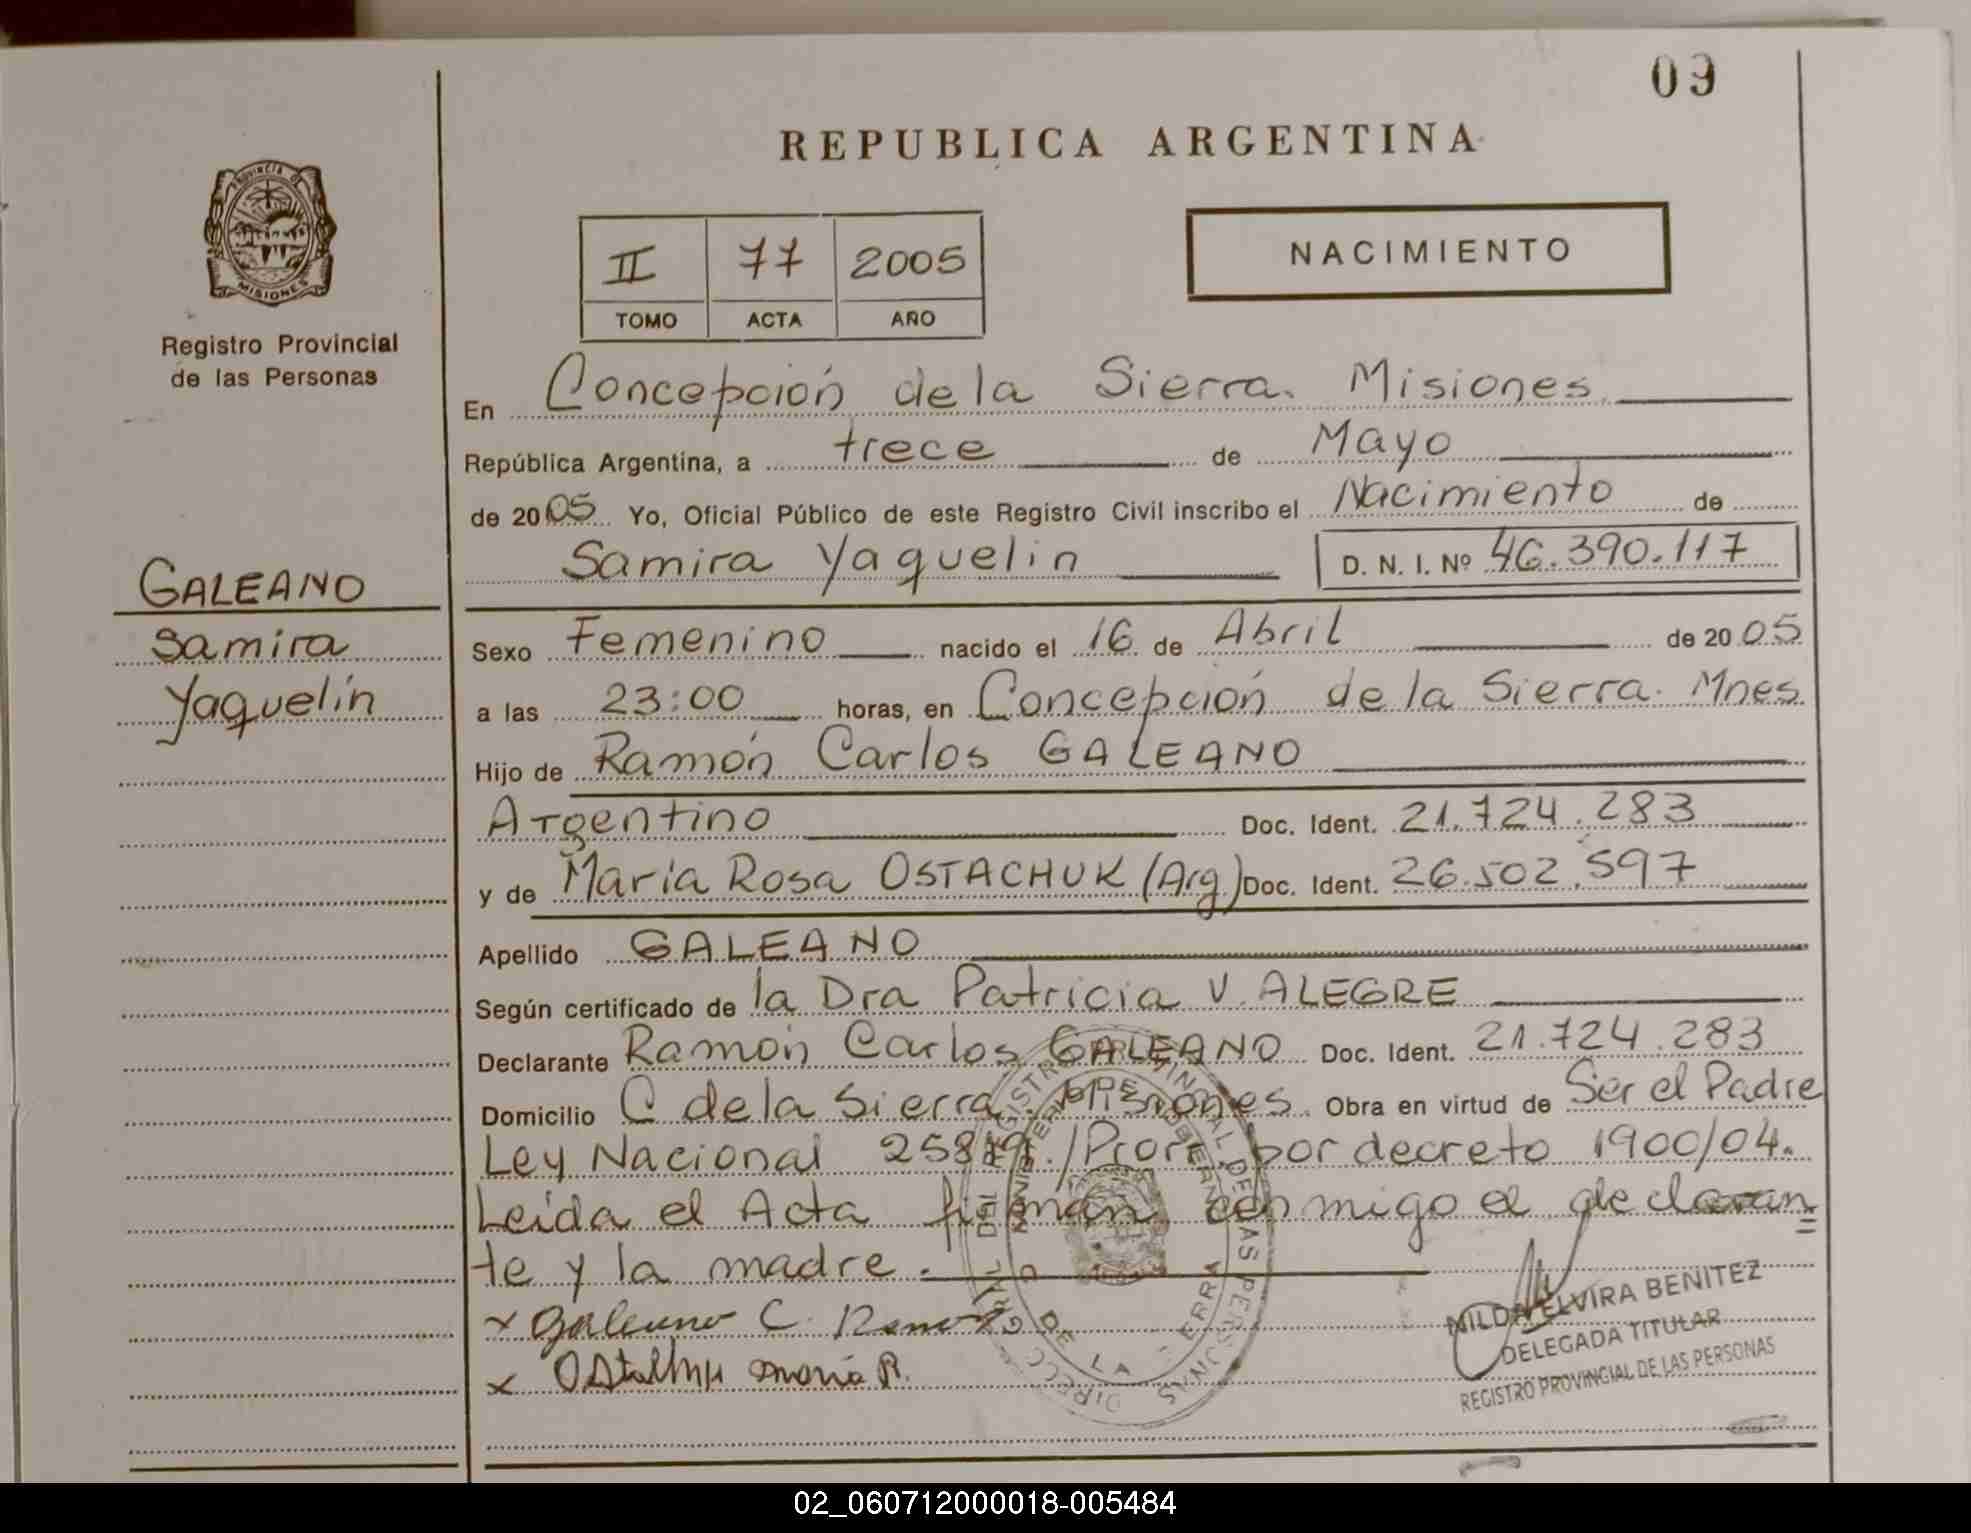 09
REPUBLICA ARGENTINA
PROVINCIA DE
MISIONES
Registro Provincial
de las Personas
NACIMIENTO
II 77 2005
TOMO ACTA AÑO
En Concepción de la Sierra. Misiones
República Argentina, a trece de Mayo
de 2005 Yo, Oficial Público de este Registro Civil inscribo el Nacimiento de
Samira Yaquelin D. N. I. Nº 46.390.117
GALEANO
Samira
Yaquelín
Sexo Femenino nacido el 16 de Abril de 2005
a las 23:00 horas, en Concepción de la Sierra. Mnes.
Hijo de Ramón Carlos GALEANO
Argentino Doc. Ident. 21.724.283
y de María Rosa OSTACHUK (Arg) Doc. Ident. 26.502.597
Apellido GALEANO
Según certificado de la Dra Patricia V. ALEGRE
Declarante Ramón Carlos GALEANO Doc. Ident. 21.724.283
Domicilio C de la Sierra. Misiones. Obra en virtud de Ser el Padre
Ley Nacional / Prorr. por decreto 1900/04.
Leída el Acta firman conmigo el declaran
te y la madre.
x Galeano C. Ramon
x maria R.
NILDA ELVIRA BENITEZ
DELEGADA TITULAR
REGISTRO PROVINCIAL DE LAS PERSONAS
02_060712000018-005484